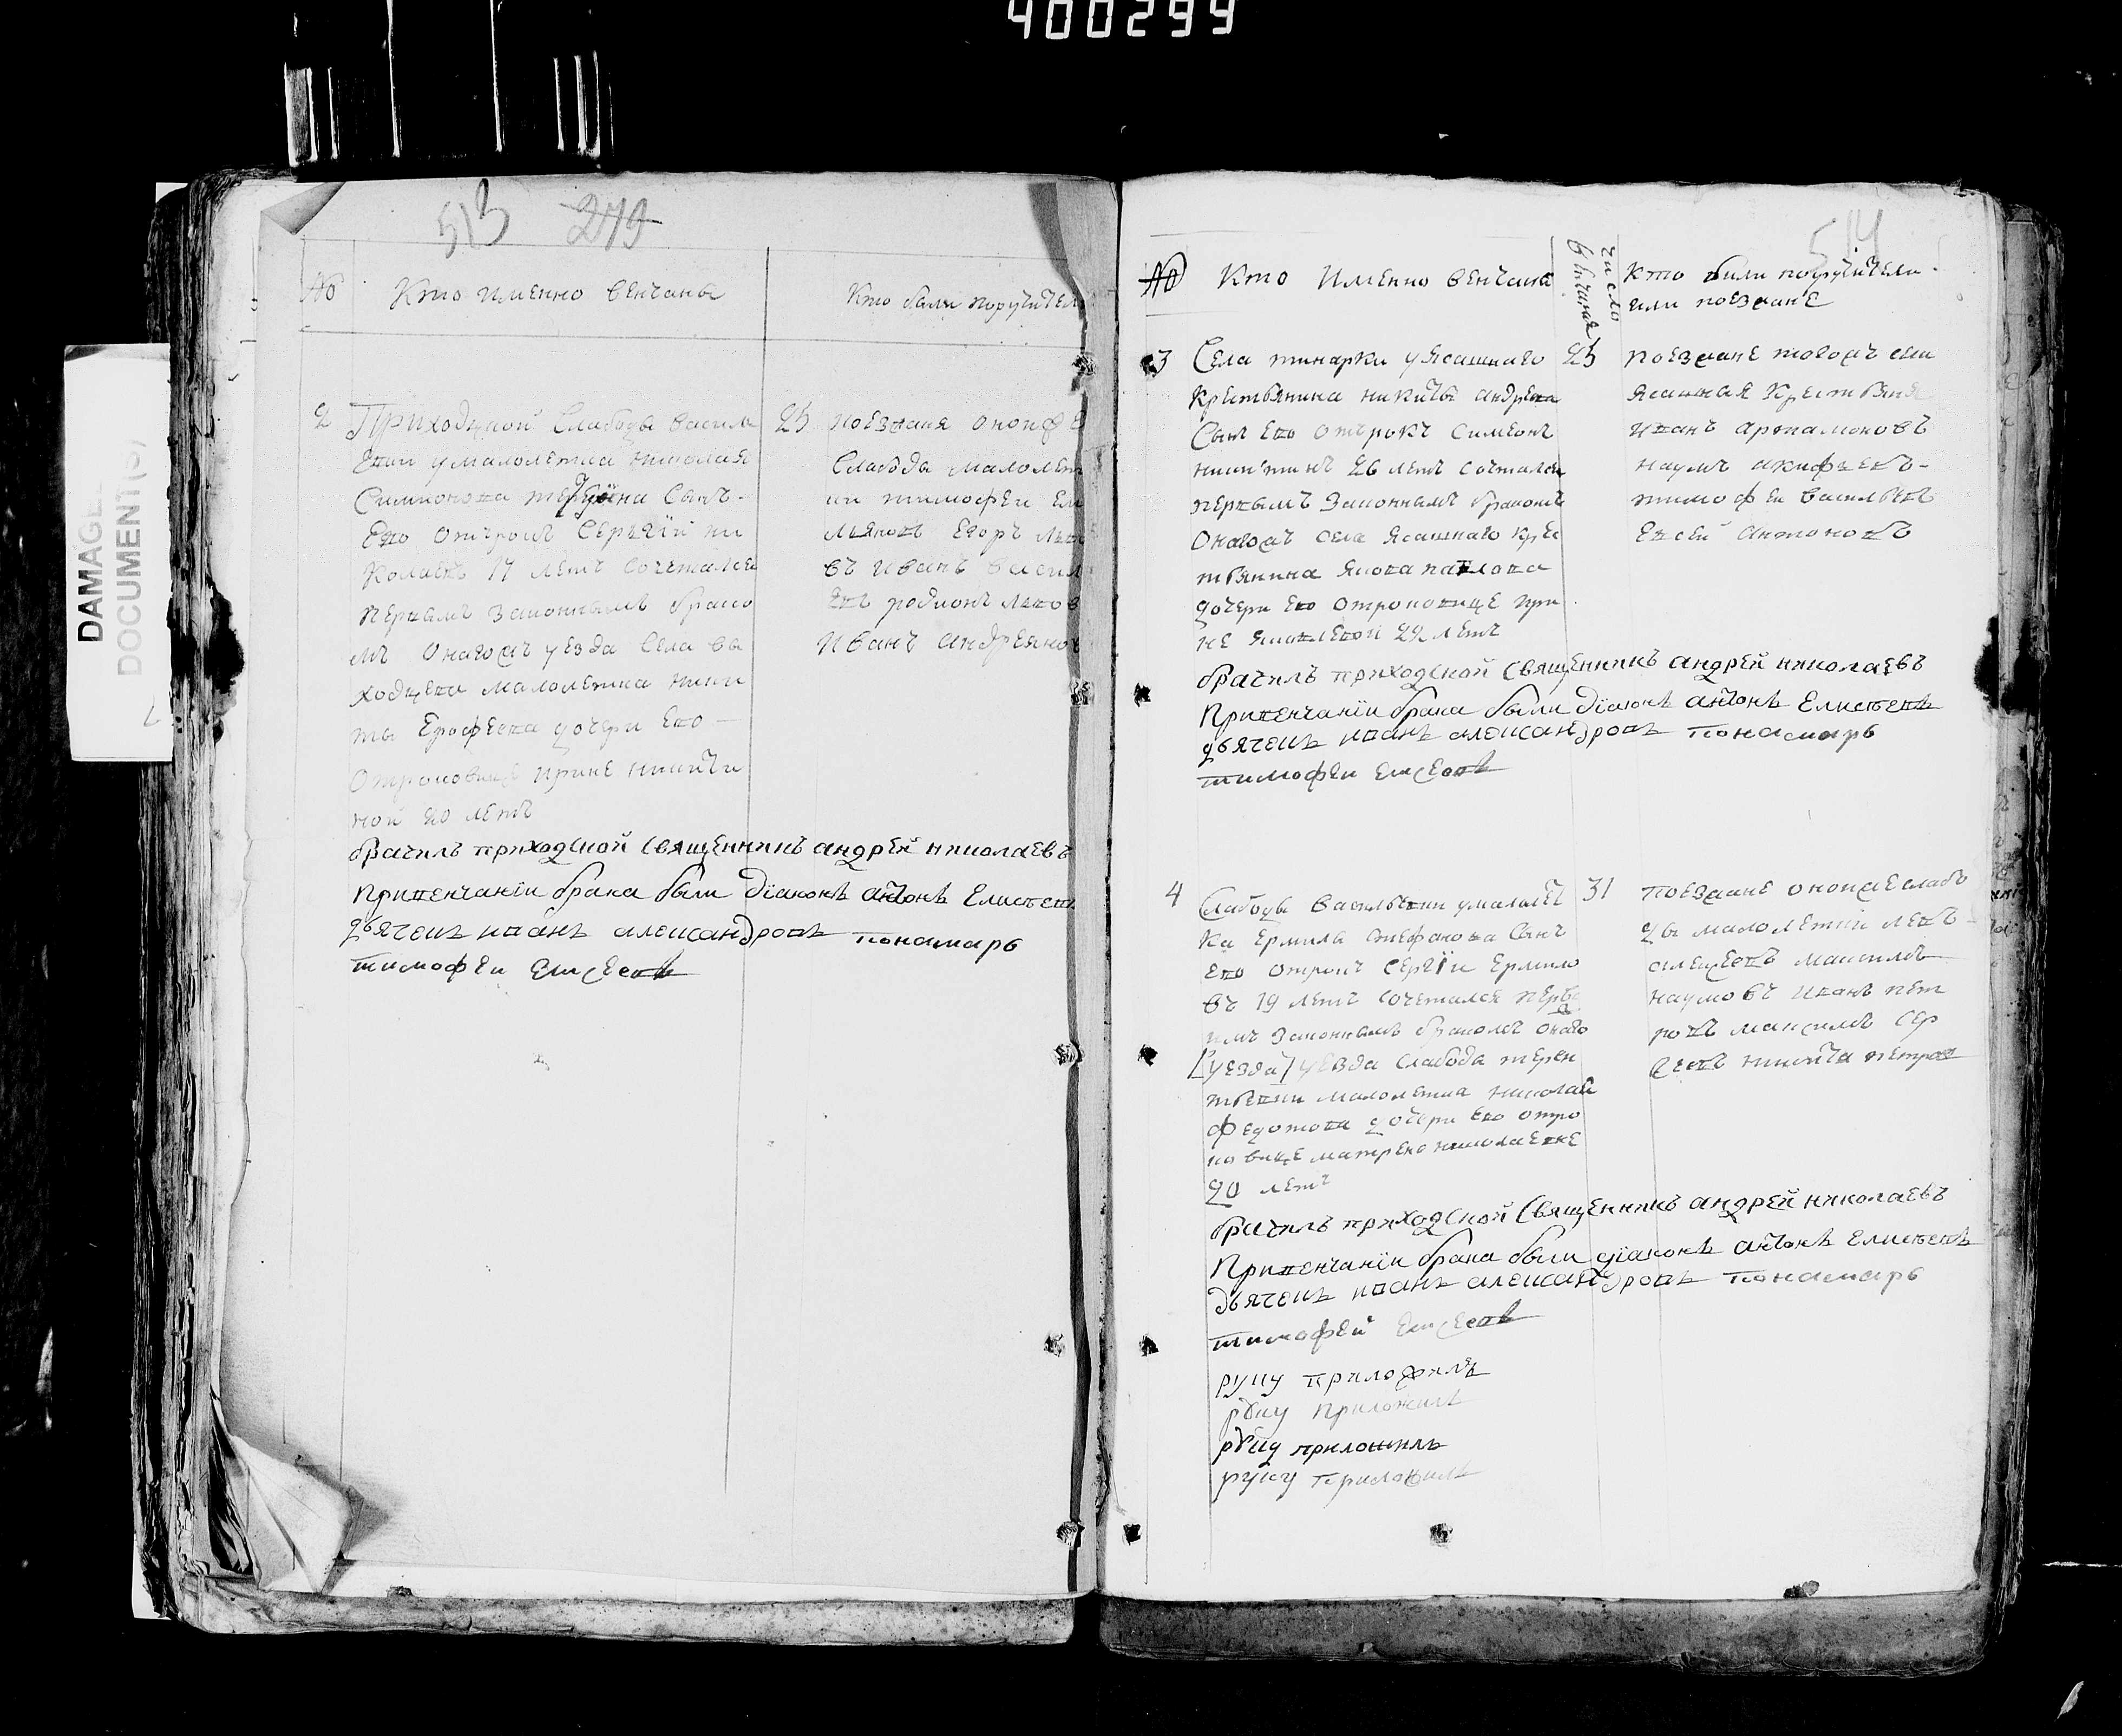 400299
DAMAGE
DOCUMENT(S)
513 279
№ Кто именно венчаны
Кто были поручител
2 Приходцкой Слабоды Василь
евки у малолетка николая
Симионова сынъ
ево отрокъ Сергѣй ни
колаевъ 17 летъ сочетался
первымъ законнымъ брако
мъ оногожъ уезда села вы
малометка ники
ты Ерофеева дочери ево
отроковице ирине никити
ной 20 летъ
25 поезжаня оной же
слабоды малолет
ки тимофеи Еме
льяновъ Егоръ льво
въ иванъ васил
евъ родионъ львов
иванъ андреянов
брачилъ приходской священникъ андрей николаевъ
при венчании брака были диаконъ антонъ Елисеевъ
дьячекъ иванъ александровъ понамарь
тимофеи
514
№ Кто именно венчана
число венчания
кто были поручители
или поезжане
3 Села тинарки у ясашнаго
крестьянина никиты андреева
сынъ ево отрокъ симеонъ
никитинъ 26 летъ сочтался
первымъ законнымъ бракомъ
оногожъ села ясашнаго кре
стьянина якова павлова
дочери ево отроковице ири
не яковлевой 22 летъ
25 поезжане тогожъ села
ясашная крестьяня
иванъ артамоновъ
наумъ акифьевъ
тимофеи васильевъ
евсей антоновъ
брачилъ приходской священникъ андрей николаевъ
при венчании брака были диаконъ антонъ Елисеевъ
дьячекъ иванъ александровъ понамарь
тимофеи
4 Слабоды Васильевки у малолет
ка Ермила стефанова сынъ
ево отрокъ сергѣи Ермило
въ 19 летъ сочетался первы
имъ законнымъ бракомъ онаго
[уезда] уезда слабоды терен
тьевки малолетка николай
федотова дочери ево отро
ковице матрене николаевне
20 летъ
31 поезжане оной же слабо
ды малолетки левъ
алексеевъ максимъ
наумовъ иванъ пет
ровъ максимъ сер
геевъ никита петров
брачилъ приходской священникъ андрей николаевъ
при венчании брака были диаконъ антонъ Елисеевъ
дьячекъ иванъ александровъ понамарь
тимофей
руку приложилъ
руку приложилъ
руку приложилъ
руку приложилъ